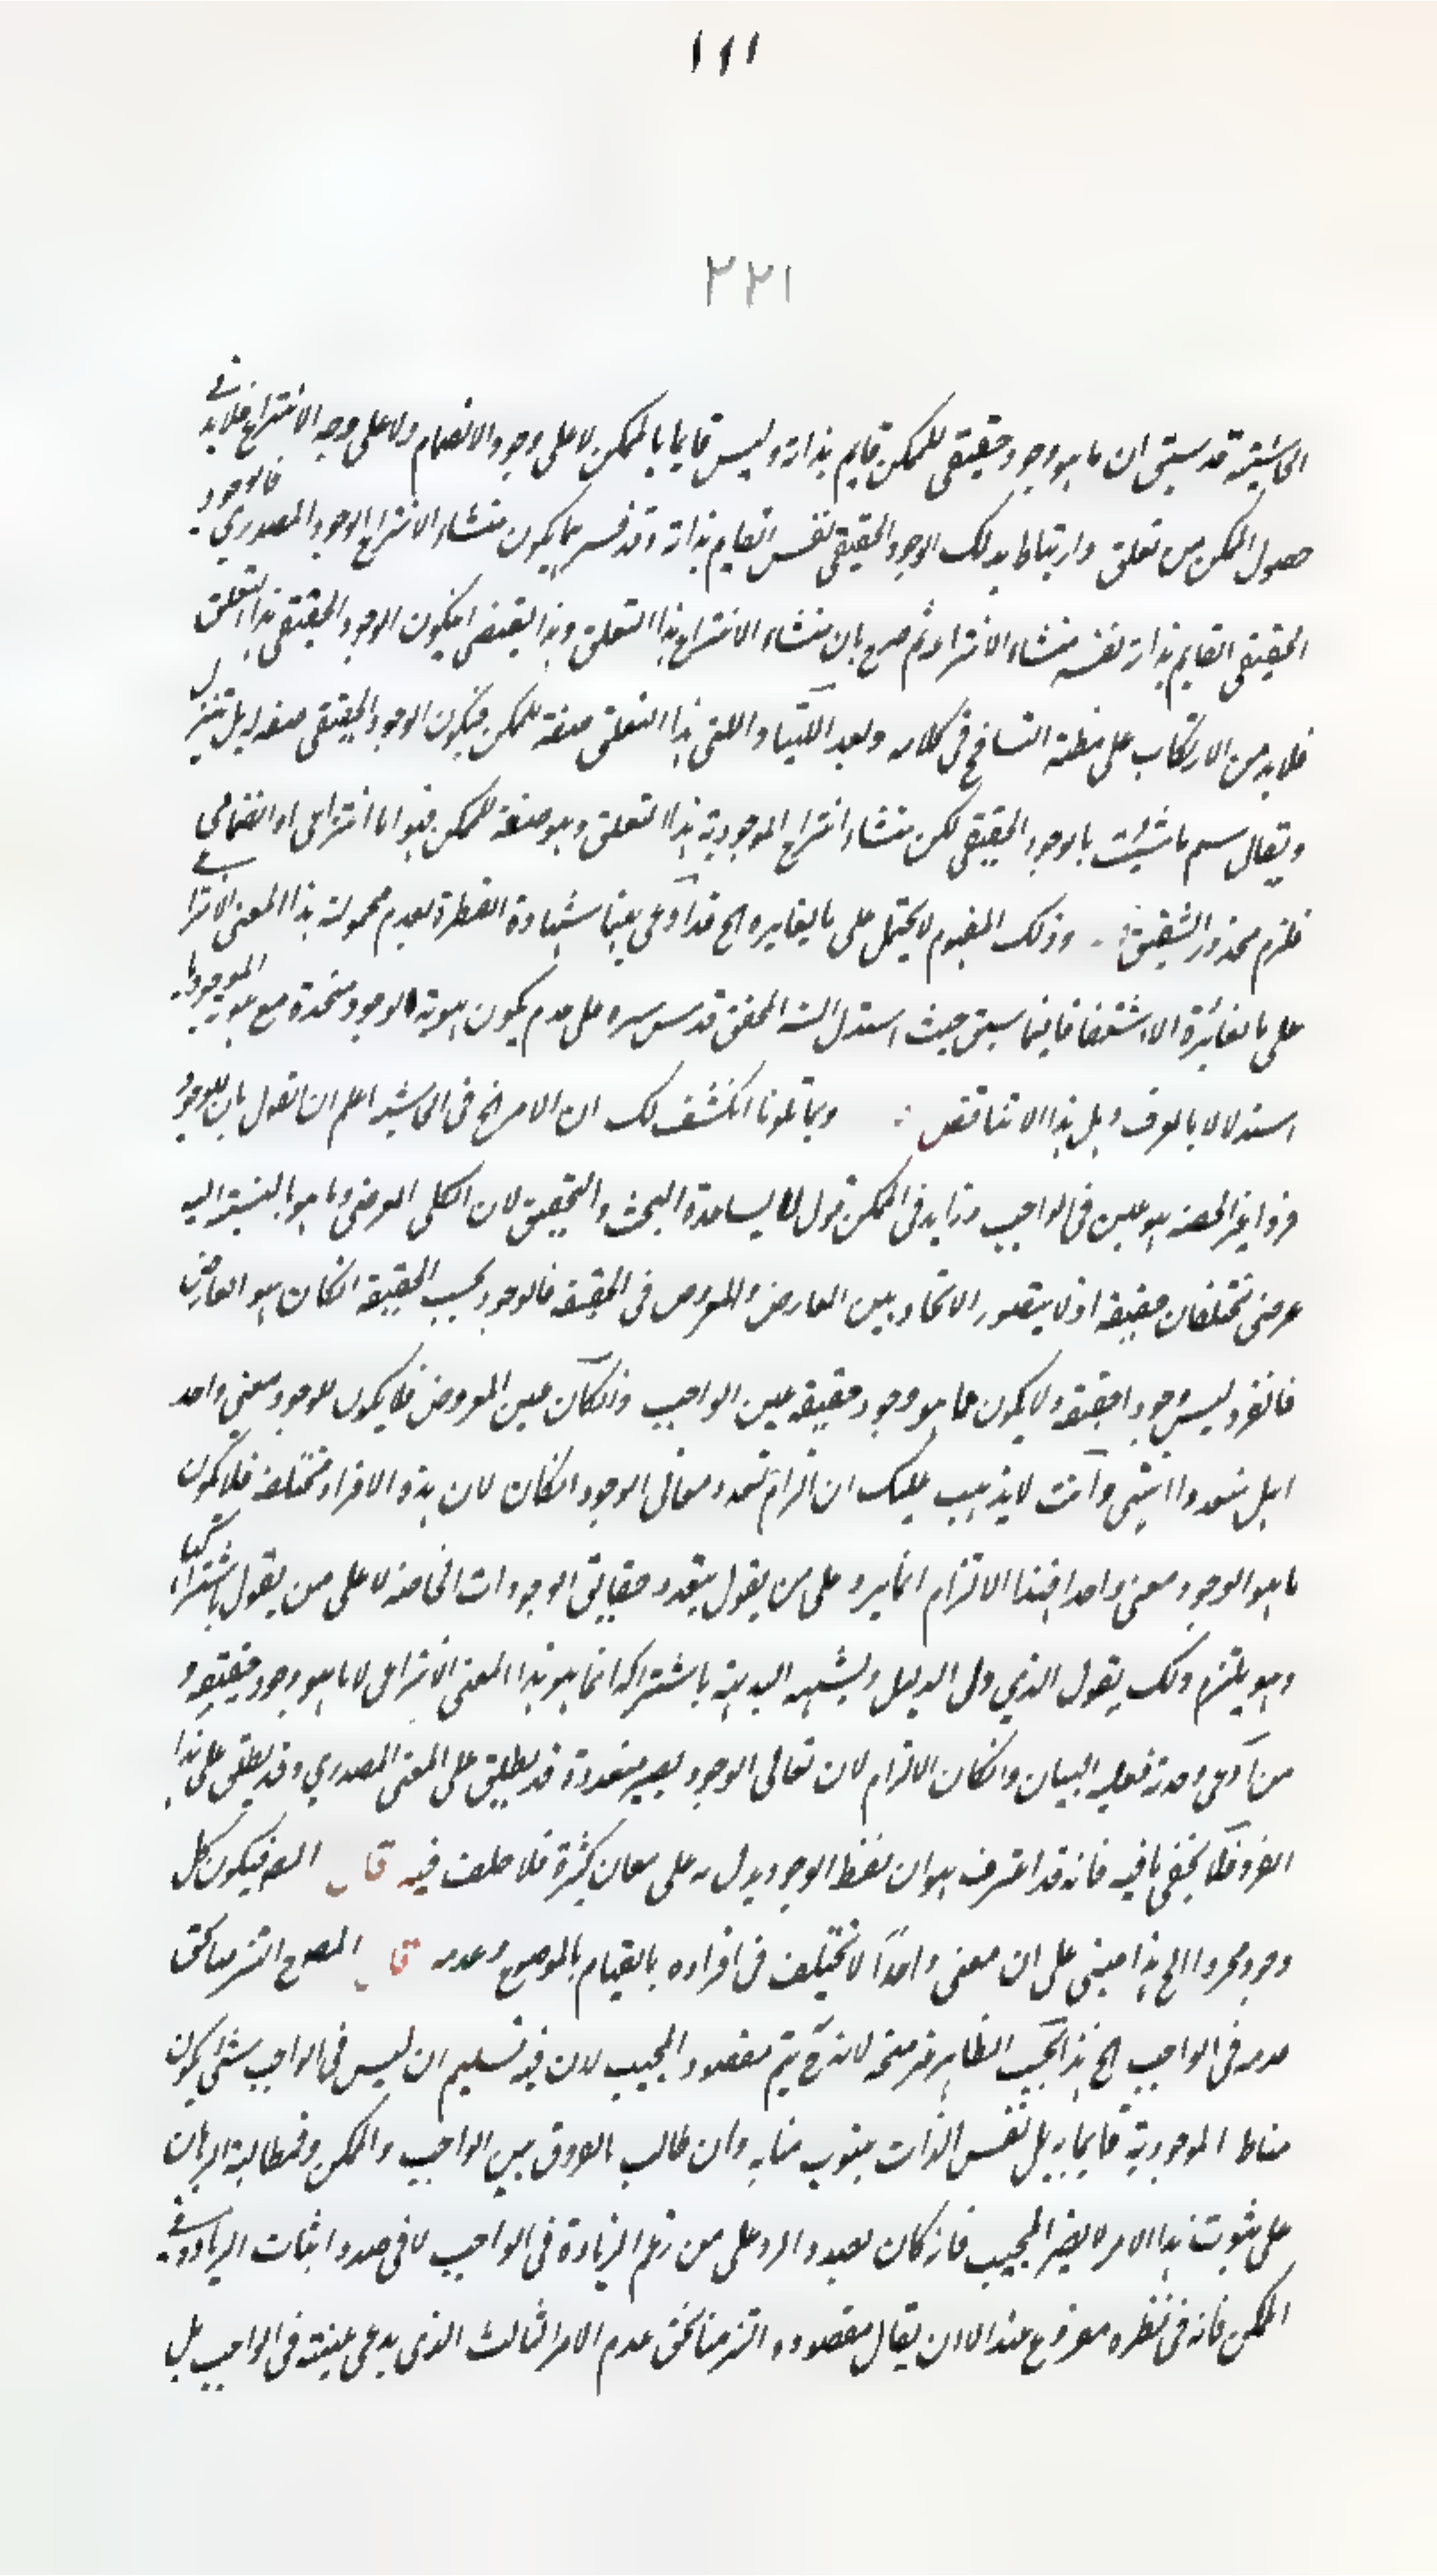 ١١١
٢٢١
الحاشية قد سبق ان ما هو وجود حقيقى للممكن قايم بذاته وليس قايما بالممكن لا على وجه الانضمام ولا على وجه الانتزاع فلا بد فى
حصول الممكن من تعلق وارتباط بذلك الوجود الحقيقى نفس القايم بذاته وقد فسر بما يكون منشاء لانتزاع الوجود المصدري فالوجود
الحقيقى القايم بذاته نفسه منشاء الانتزاع ثم صرح بان منشاء الانتزاع هذا التعلق وهذا يقتضى ان يكون الوجود الحقيقى هذا التعلق
فلا بد من الارتكاب على مظنة التسامح فى كلامه وبعد اللتيا واللتى هذا التعلق صفة للممكن فيكون الوجود الحقيقى صفة له بل نتنزل
ويقال سم ما شئت بالوجود الحقيقى لكن منشاء انتزاع الموجودية هذا التعلق وهو صفة للممكن فهو اما انتزاعى او انضمامى
فلزم محذور الشقين وذلك المفهوم لا يحمل على ما يغايره الخ قد ادعى ههنا شهادة الفطرة بعدم محمولية هذا المعنى الانتزاعى
على ما يغايره الا اشتقاقا فيما سبق حيث استدل السيد المحقق قدس سره على عدم كون هوية الوجود متحدة مع هوية الموجود بها
استدلالا بالعرف وهل هذا الا تناقض وبما تلونا انكشف لك ان الامر الخ فى الحاشية اعلم ان القول بان للوجود
فردا غير الحصة هو عين فى الواجب وزايد فى الممكن قول لا يساعده البحث والتحقيق لان الكلى العرضى وما هو بالنسبة اليه
عرضى مختلفان حقيقة اذ لا يتصور الاتحاد بين العارض والمعروض فى الحقيقة فالوجود بحسب الحقيقة ان كان هو العارض
فالفرد ليس وجودا حقيقة ولا يكون ما هو وجود حقيقة عين الواجب وان كان عين المعروض فلا يكون للوجود معنى واحد
بل متعددا انتهى وانت لا يذهب عليك ان الزام تعدد معانى الوجود ان كان لان هذه الافراد مختلفة فلا يكون
ما هو الوجود معنى واحدا فهذا الالتزام انما يرد على من يقول بتعدد حقايق الوجودات الخاصة لا على من يقول باشتراكها
وهو يلتزم ذلك يقول الذي دل الدليل ويشهد البديهة باشتراكه انما هو هذا المعنى الانتزاعى لا ما هو وجود حقيقة و
من ادعى وحدته فعليه البيان وان كان الالزام لان معانى الوجود يصير متعددة قد يطلق على المعنى المصدري وقد يطلق على هذا
الفرد فلا يخفى ما فيه فانه قد اعترف هو ان لفظ الوجود يدل به على معان كثيرة فلا خلف فيه قال السيد فيكون كل
وجود مجردا الخ هذا مبنى على ان معنى واحدا لا يختلف فى افراده بالقيام بالموضوع وعدمه قال المصرح التزمنا تحقق
عدمه فى الواجب الخ هذا بحسب الظاهر غير متجه لانه ح يتم مقصود المجيب لان فيه تسليم ان ليس فى الواجب شئ يكون
مناط الموجودية قايما به بل نفس الذات ينوب منابه وان طالب بالفرق بين الواجب والممكن ومطالبة البرهان
على ثبوت هذا الامر لا يضر المجيب فانه كان بصدد الرد على من زعم الزيادة فى الواجب لا فى صدد اثبات الزيادة فى
الممكن فانه فى نظره مفروغ عنه الا ان يقال مقصوده التزمنا تحقق عدم الامر الثالث الذى يدعى عينيته فى الواجب بل